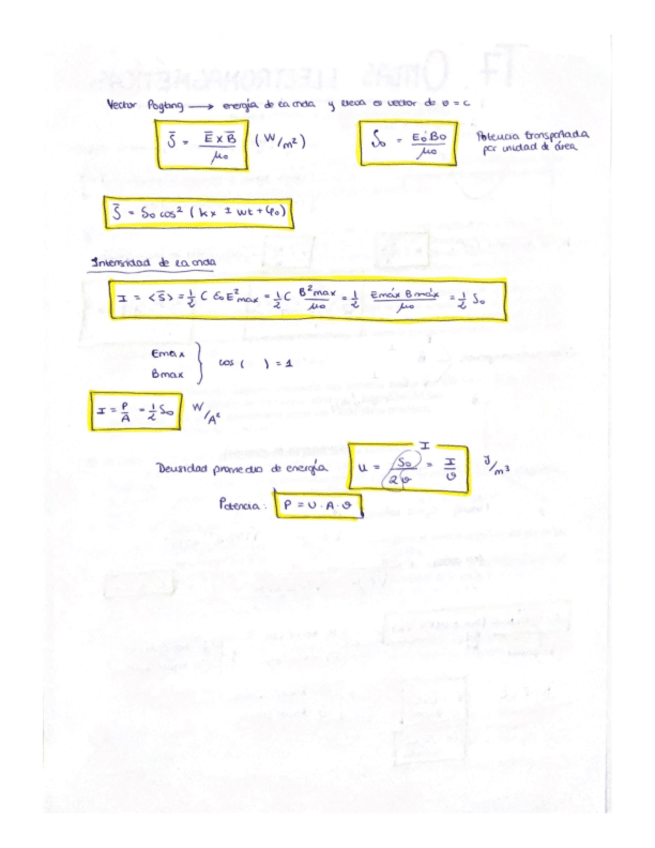 Vector Poyting → energía de la onda y lleva es vector de v = c
S̄ = Ē x B̄ / μ₀ (W/m²)
S₀ = E₀·B₀ / μ₀
Potencia transportada
por unidad de área
S̄ = S₀ cos² (kx ± wt + φ₀)
Intensidad de la onda
I = <S̄> = 1/2 C ε₀E²max = 1/2 C B²max / μ₀ = 1/2 Emáx Bmáx / μ₀ = 1/2 S₀
Emax
Bmax } cos ( ) = 1
I = P/A = 1/2 S₀ W/A²
Densidad promedio de energía u = S₀/2v = I/v J/m³
I
Potencia: P = U · A · v